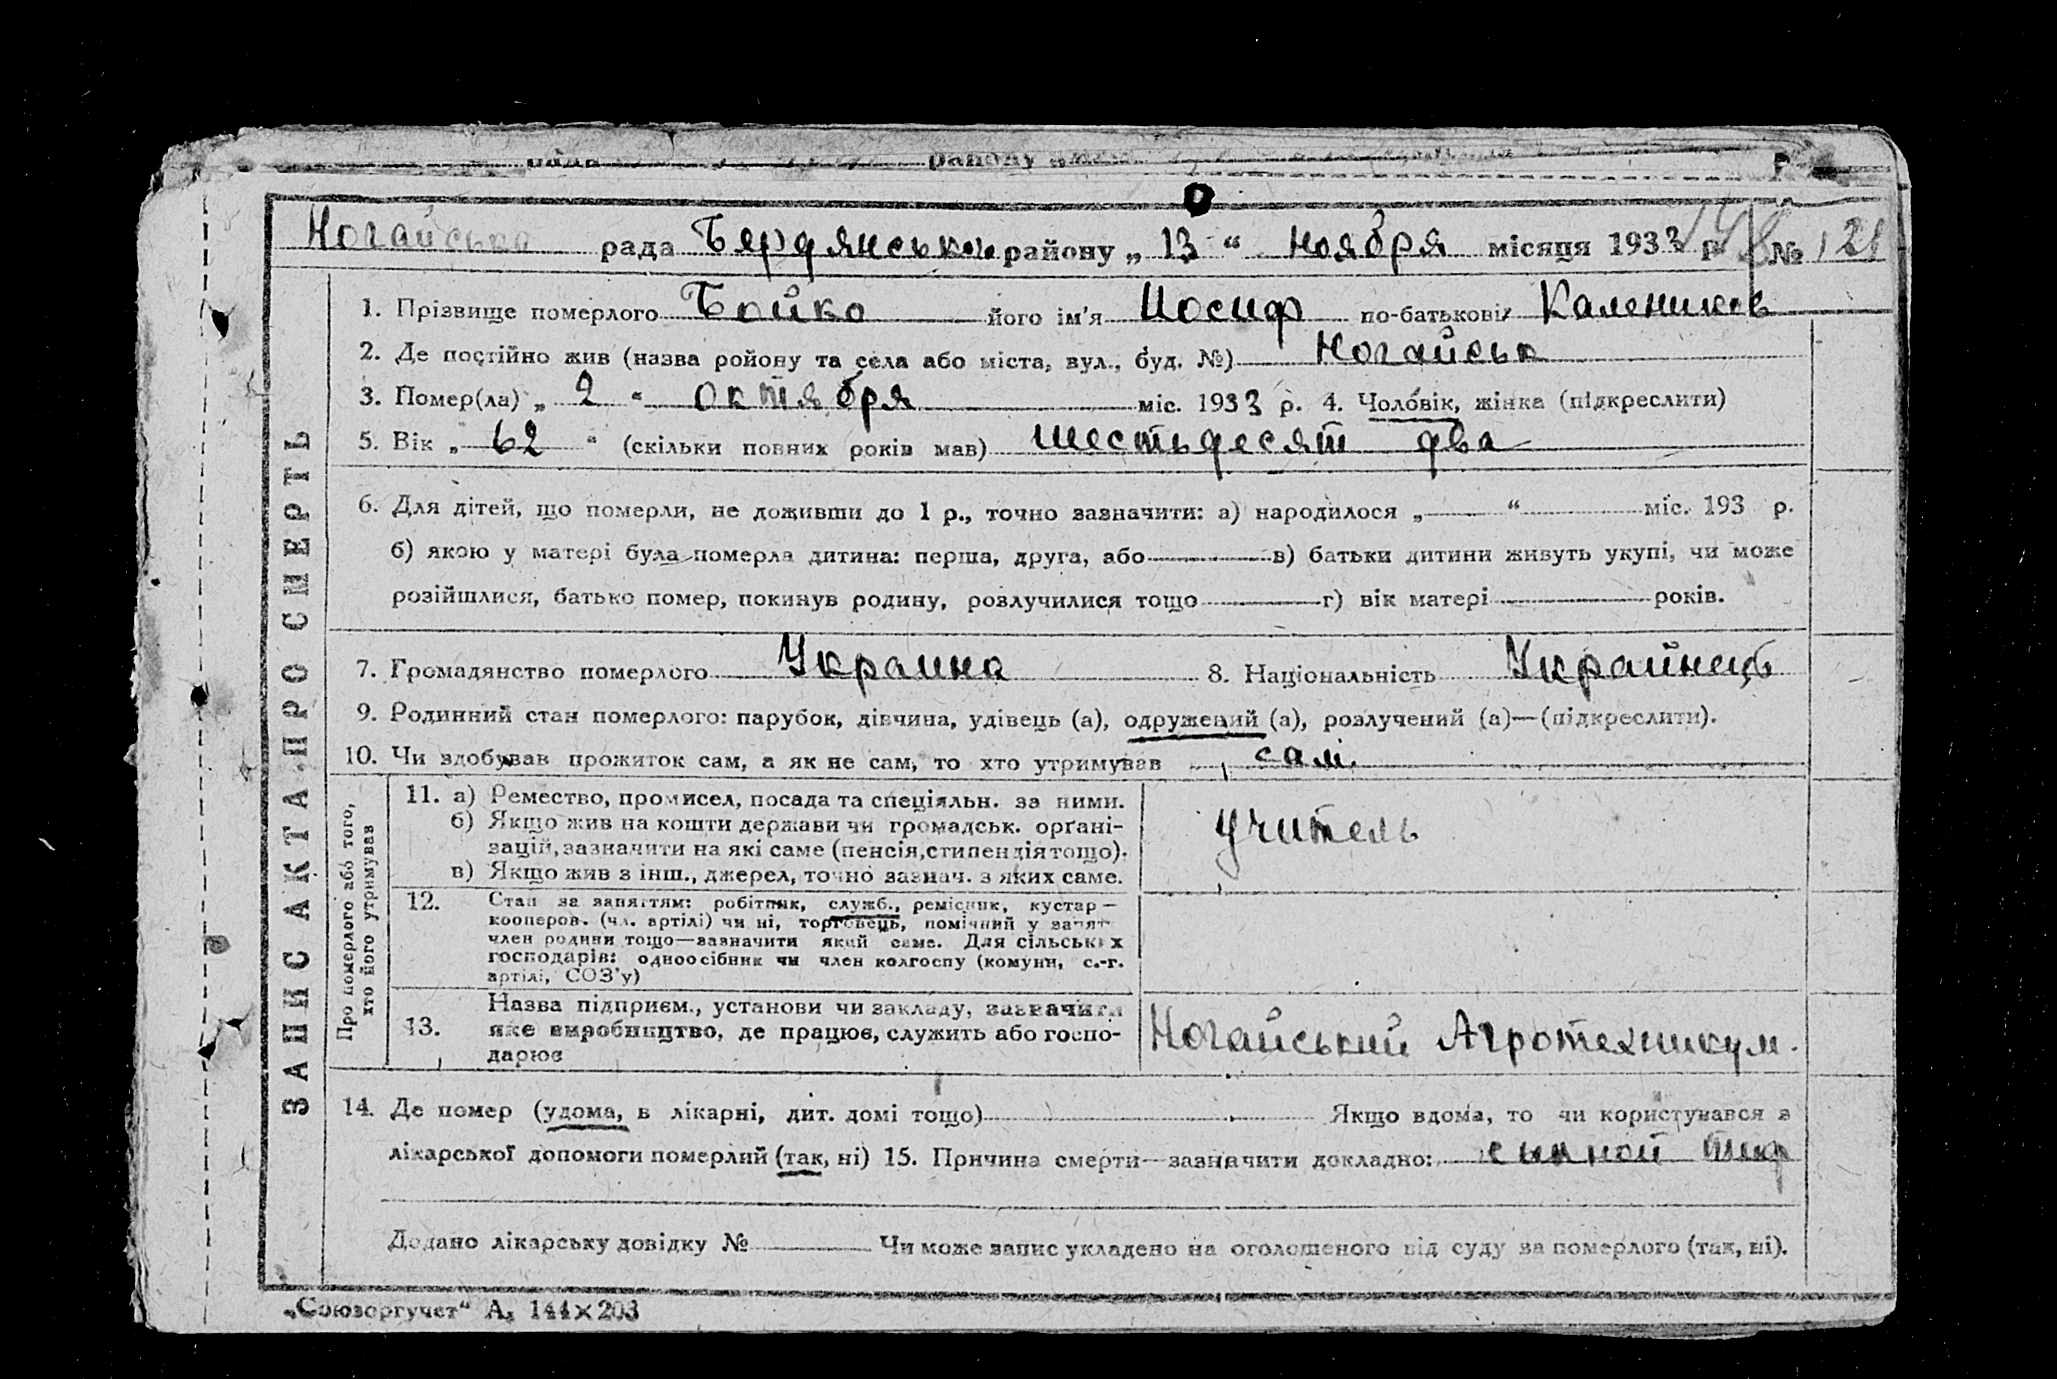 рада району р
Ногайська рада Бердянського району „ 13 “ Ноября місяця 1933 р. № 121
1. Прізвище померлого Бойко його ім'я Иосиф по-батькові Калеников
2. Де постійно жив (назва ройону та села або міста, вул., буд. №) Ногайськ
3. Помер(ла) „ 2 “ октября міс. 1933 р. 4. Чоловік, жінка (підкреслити)
5. Вік „ 62 “ (скільки повних років мав) шестьдесят два
6. Для дітей, що померли, не доживши до 1 р., точно зазначити: а) народилося „ “ міс. 193 р.
б) якою у матері була померла дитина: перша, друга, або в) батьки дитини живуть укупі, чи може
розійшлися, батько помер, покинув родину, розлучилися тощо г) вік матері років.
7. Громадянство померлого Украина 8. Національність Украйнець
9. Родинний стан померлого: парубок, дівчина, удівець (а), одружений (а), розлучений (а)—(підкреслити).
10. Чи здобував прожиток сам, а як не сам, то хто утримував сам.
ЗАПИС АКТА ПРО СМЕРТЬ
Про померлого або того,
хто його утримував
11. а) Ремество, промисел, посада та спеціяльн. за ними.
б) Якщо жив на кошти держави чи громадськ. орґані-
зацій, зазначити на які саме (пенсія, стипендія тощо).
в) Якщо жив з інш., джерел, точно зазнач. з яких саме.
учитель
12. Стан за заняттям: робітник, служб., ремісник, кустар—
кооперов. (чл. артілі) чи ні, торговець, помічний у занят
член родини тощо—зазначити який саме. Для сільських
господарів: одноосібник чи член колгоспу (комуни, с.-г.
артілі, СОЗ'у)
13. Назва підприєм., установи чи закладу, зазначити
яке виробництво, де працює, служить або госпо-
дарює
Ногайський Агротехникум.
14. Де помер (удома, в лікарні, дит. домі тощо) Якщо вдома, то чи користувався з
лікарської допомоги померлий (так, ні) 15. Причина смерти—зазначити докладно: сыпной тиф
Додано лікарську довідку № Чи може запис укладено на оголошеного від суду за померлого (так, ні).
„Союзоргучет“ А₅ 144×203